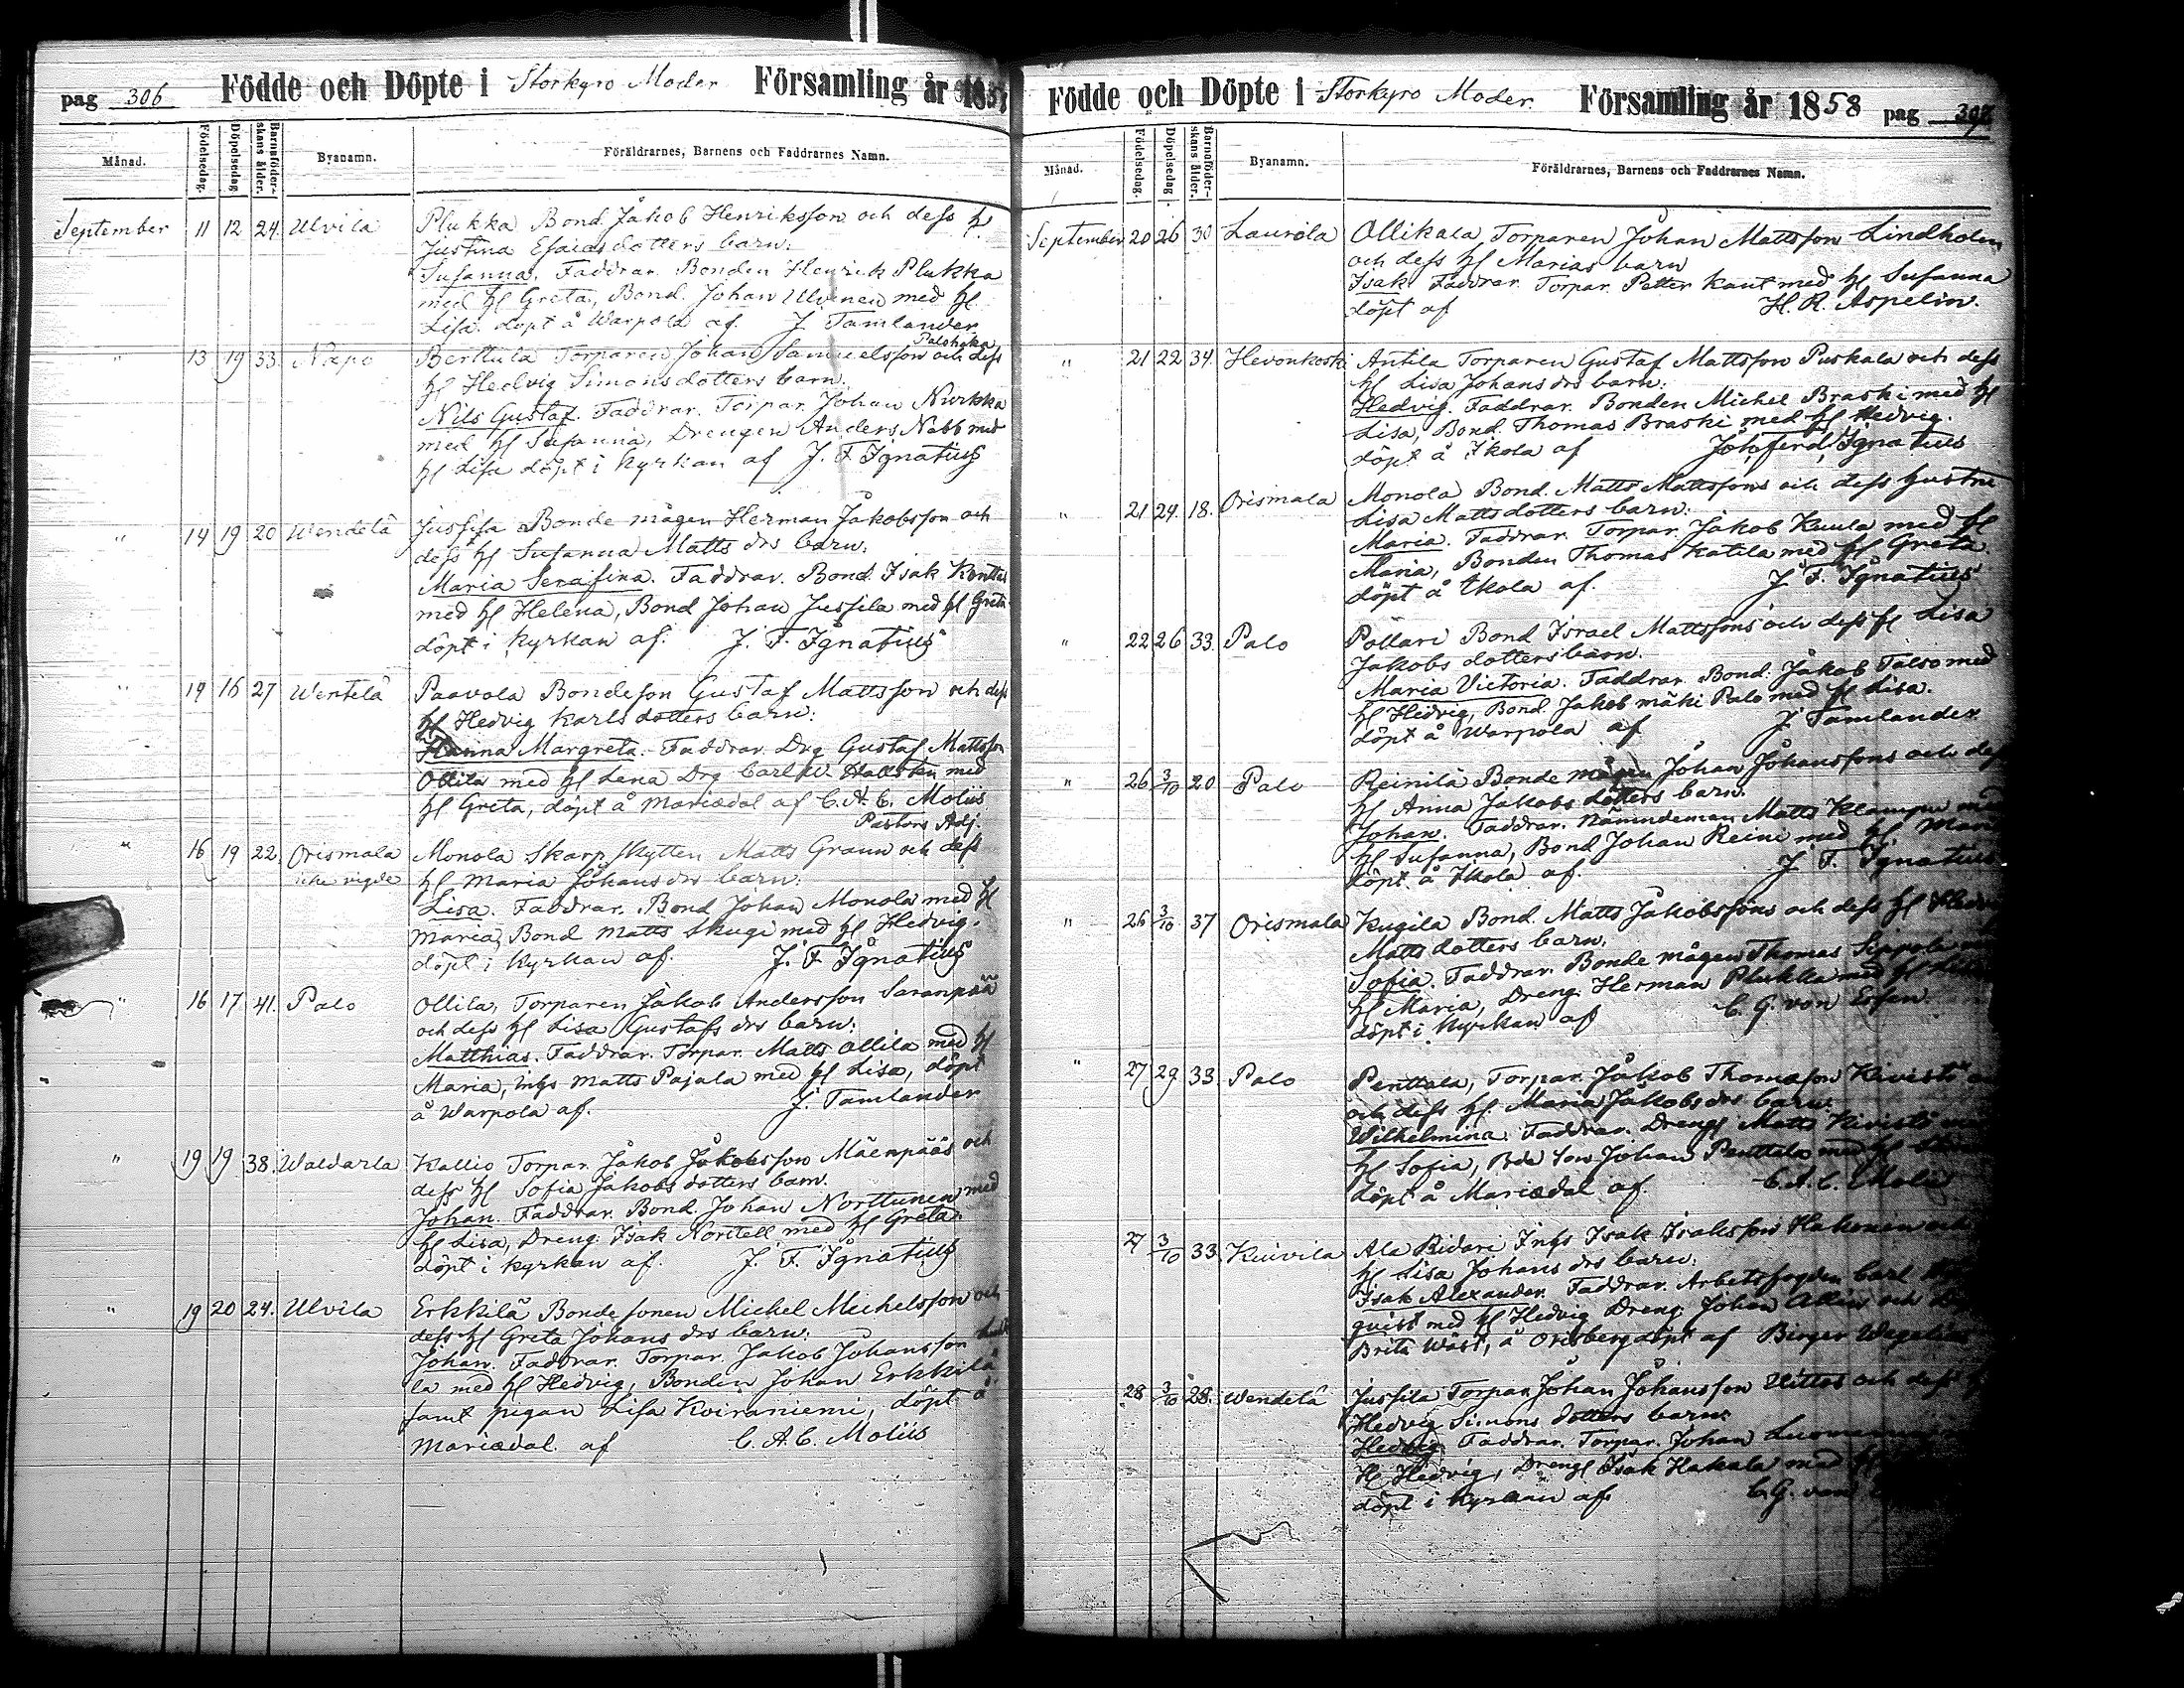 pag 306 Födde och Döpte i Storkyro Moder Församling år 1858
Månad. Födelsedag. Döpelsedag Barnaföderskans ålder. Byanamn. Föräldrarnes, Barnens och Faddrarnes Namn.
September 11 12 24. Ulvila Plukka Bond. Jakob Henriksson och dess H.
Justina Esaiasdotters barn:
Susanna. Faddrar. Bonden Henrik Plukka
med H Greta, Bond. Johan Ulvinen med H
Lisa. döpt å Warpola af. J. Tamlander
" 13 19 33. Napo Berttula Torparen Johan Samuelsson Palohoka och dess
H Hedvig Simonsdotters barn.
Nils Gustaf. Faddrar. Torpar. Johan Nurkka
med H Susanna, Drengen Anders Nabb med
H Lisa döpt i Kyrkan af J. F. Ignatius
" 14 19 20 Wendelä Jussila Bonde mågen Herman Jakobsson och
dess H Susanna Matts drs barn.
Maria Serafina. Faddrar. Bond. Isak
med H Helena, Bond Johan Jussila med H Greta
döpt i Kyrkan af. J. F. Ignatius
" 14 16 27 Wentelä Paavola Bondeson Gustaf Mattsson och dess
H Hedvig Karlsdotters barn:
Hanna Margreta. Faddrar. Drg Gustaf Mattsson
Ollila med H Lena Drg Carl W. med
H Greta, döpt å Mariædal af C. A. C. Molius
Pastors Adj.
" 16 19 22. Orismala Monola Skarpskytten Matts Graun och dess
icke vigde H Maria Johans drs barn.
Lisa. Faddrar. Bond Johan Monola med H
Maria, Bond Matts Skugi med H Hedvig.
döpt i Kyrkan af. J. F. Ignatius
" 16 17 41. Palo Ollila, Torparen Jakob Andersson Saranpää
och dess H Lisa Gustafs drs barn:
Matthias. Faddrar. Torpar. Matts Ollila med H
Maria, Inhs Matts Pajala med H Lisa, döpt
å Warpola af. J. Tamlander
" 19 19 38. Waldarla Kallio Torpar. Jakob Jakobsson Mäenpääs och
dess H Sofia Jakobsdotters barn.
Johan. Faddrar. Bond. Johan Norttunen med
H Lisa, Dreng. Isak Norttell med H Greta.
döpt i Kyrkan af. J. F. Ignatius
" 19 20 24. Ulvila Erkkilä Bonde sonen Michel Michelsson och
dess H Greta Johans drs barn:
Johan. Faddrar. Torpar. Jakob Johansson
la med H Hedvig, Bonden Johan Erkkilä
samt pigan Lisa Koiraniemi, döpt å
Mariædal af C. A. C. Molius
Födde och Döpte i Storkyro Moder Församling år 1858 pag 307
Månad. Födelsedag. Döpelsedag. Barnaföderskans ålder. Byanamn. Föräldrarnes, Barnens och Faddrarnes Namn.
September 20 26 30 Laurola Ollikala Torparen Johan Mattsson Lindholm
och dess H Marias barn
Isak Faddrar. Torpar. Petter Kant med H Susanna
döpt af H. R. Aspelin.
" 21 22 34. Hevonkoski Antila Torparen Gustaf Mattsson Puskala och dess
H Lisa Johans drs barn:
Hedvig. Faddrar. Bonden Michel Braski med H
Lisa, Bond. Thomas Braski med H Hedvig.
döpt å Ikola af Joh. Ferd. Ignatius
" 21 24. 18. Orismala Monola Bond. Matts Mattssons och dess hustru
Lisa Mattsdotters barn:
Maria. Faddrar. Torpar. Jakob Kuula med H
Maria, Bonden Thomas Katila med H Greta.
döpt å Ikola af. J. F. Ignatius
" 22 26 33. Palo Pollari Bond Israel Mattssons och dess H Lisa
Jakobs dotters barn.
Maria Victoria. Faddrar. Bond. Jakob Talso med
H Hedvig, Bond. Jakob mäki Palo med H Lisa.
döpt å Warpola af J. Tamlander
" 26 3/10 20 Palo Reinilä Bonde mågen Johan Johanssons och dess
H Anna Jakobs dotters barn.
Johan. Faddrar. Nämndeman Matts Klampu med
H Susanna, Bond Johan Reini med H Maria
döpt å Ikola af. J. F. Ignatius
" 26 3/10 37 Orismala Kugila Bond. Matts Jakobssons och dess H Hedvig
Matts dotters barn.
Sofia. Faddrar. Bonde mågen Thomas Seppola med
H Maria, Dreng. Herman Plukka med H
döpt i Kyrkan af C. G. von Essen
" 27 29 33. Palo Penttala, Torpar. Jakob Thomasson Kivistö
och dess H. Maria Jakobs drs barn:
Wilhelmina. Faddrar. Dreng Matts Kivistö med
H Sofia, Bde Son Johan Penttala med H
döpt å Mariædal af. C. A. C. Molius
27 3/10 33 Kuivila Ala Ridari Inhs Isak Isaksson Hakonen och
H Lisa Johans drs barn.
Isak Alexander. Faddrar. Arbetsfogden Carl
quist med H Hedvig Dreng. Johan Allin och
Brita Wäst, å Orisberg döpt af Birger Wegelius
28 3/10 28. Wendelä Jussila Torpar. Johan Johansson Uittos och dess H
Hedvig Simons dotters barn:
Hedvig. Faddrar. Torpar. Johan
H Hedvig, Dreng Isak Hakala med H
döpt i Kyrkan af C. G. von